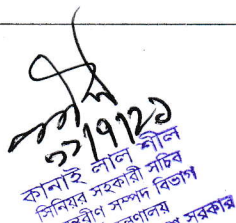 ২২/৭/২১
কানাই লাল শীল
সিনিয়র সহকারী সচিব
সম্পদ বিভাগ
সরকার